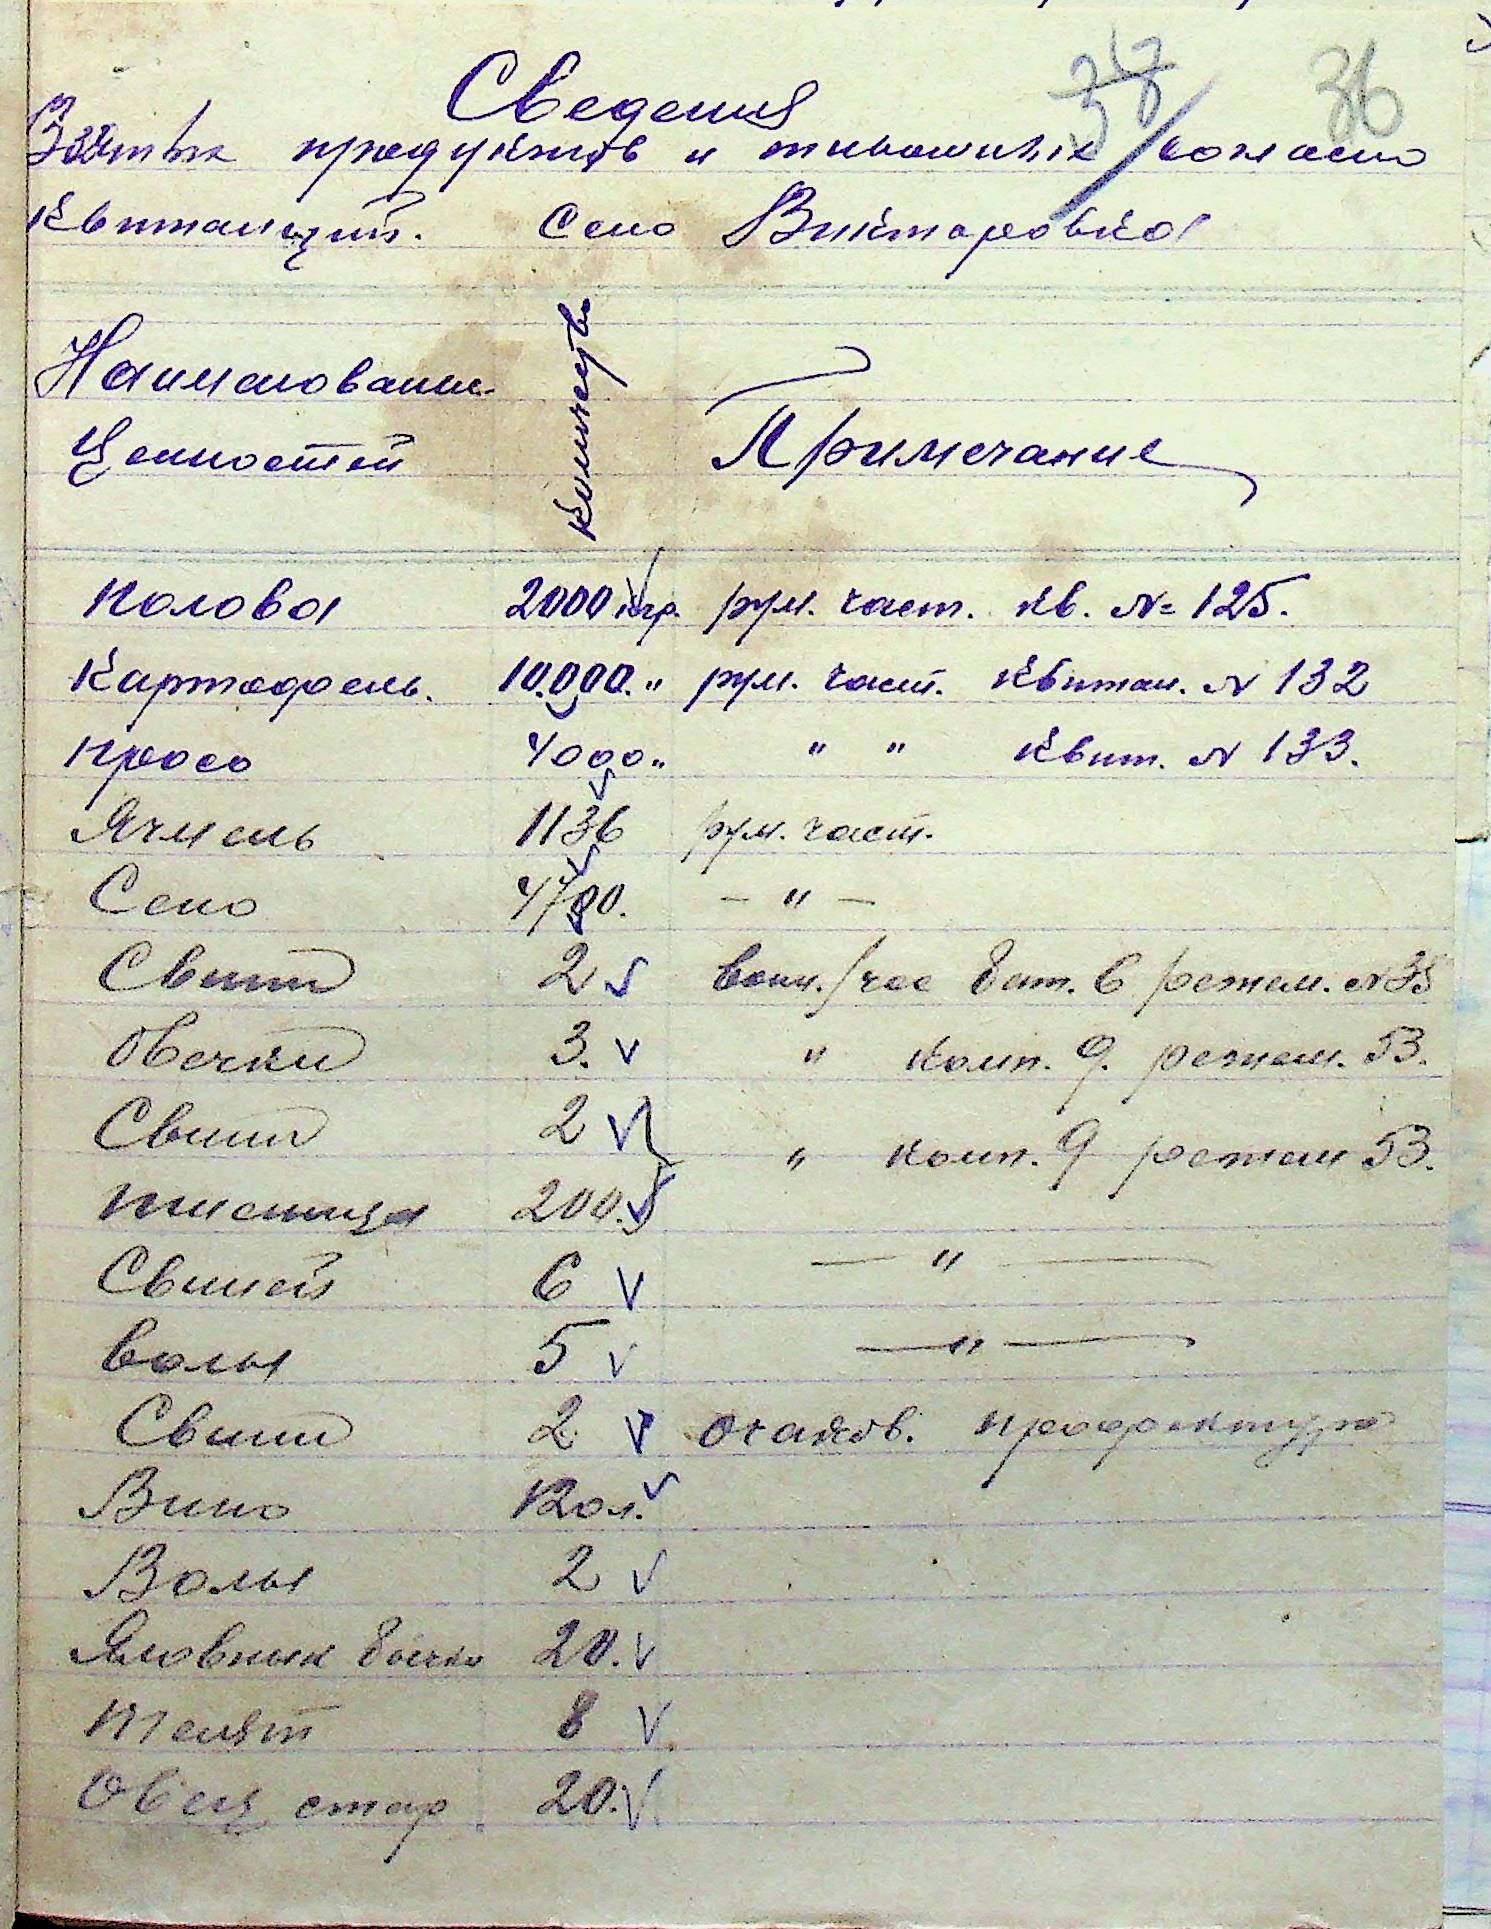 37 36
Сведения
Взятых продуктов и животных согласно
квитанций. Село Викторовка
Наименование Количество Примечание
Ценностей
Полова 2000 кгр. рум. част. кв. № 125.
Картофель. 10.000. " рум. част. Квитан. № 132
просо 4000 " " " Квит. № 133.
Ячмень 1136 рум. част.
Сено 4700. – " –
Свини 2 воин./час бат. 6 режем. № 35
Овечки 3. " комп. 9. режем. 53.
Свини 2 " комп. 9 режем 53.
пшеница 200.
Свиней 6 — " —
волы 5 — " —
Свини 2 Очаков. префектура
Вино 120 л.
Волы 2
Яловных 20.
Телят 8
Овец стар. 20.